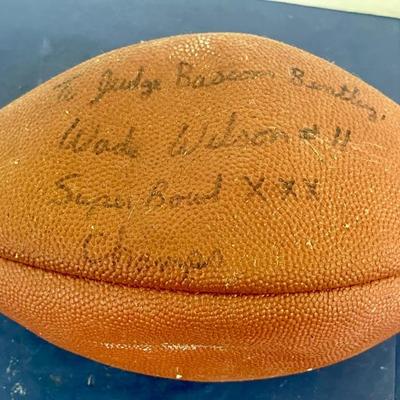 To Judge Bascom Bentley,
Wade Wilson #11
Super Bowl XXX
Champs